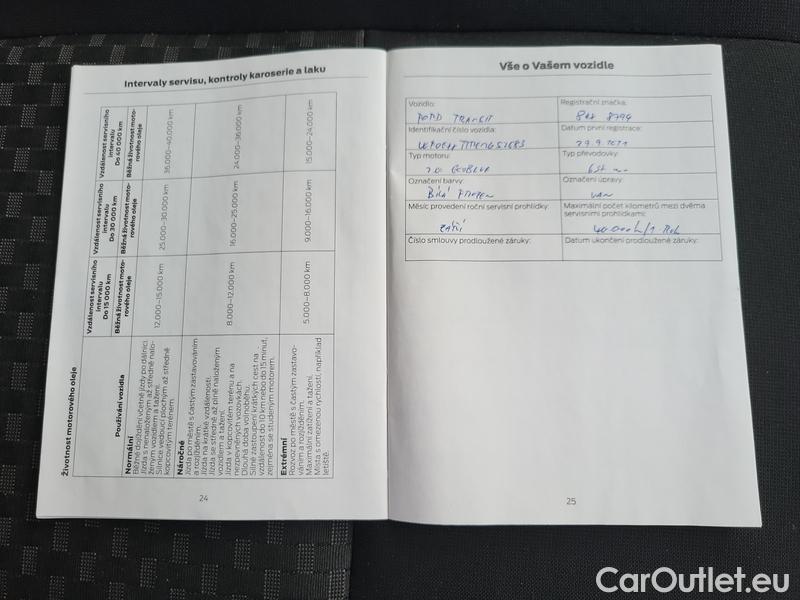 Intervaly servisu, kontroly karoserie a laku
Životnost motorového oleje
Používání vozidla
Vzdálenost servisního intervalu
Do 15 000 km
Běžná životnost motorového oleje
Vzdálenost servisního intervalu
Do 30 000 km
Běžná životnost motorového oleje
Vzdálenost servisního intervalu
Do 40 000 km
Běžná životnost motorového oleje
Normální
Běžné dojíždění včetně jízdy po dálnici.
Jízda s nenaloženým až středně naloženým vozidlem a tažení.
Silnice vedoucí plochým až středně kopcovitým terénem.
12.000–15.000 km
25.000–30.000 km
35.000–40.000 km
Náročné
Jízda po městě s častým zastavováním a rozjížděním.
Jízda na krátké vzdálenosti.
Jízda se středně až plně naloženým vozidlem a tažení.
Jízda v kopcovitém terénu a na nezpevněných vozovkách.
Dlouhá doba volnoběhu.
Silné zastoupení krátkých cest na vzdálenost do 10 km nebo do 15 minut, zejména se studeným motorem.
8.000–12.000 km
16.000–25.000 km
24.000–36.000 km
Extrémní
Rozvoz po městě s častým zastavováním a rozjížděním.
Maximální zatížení a tažení.
Místa s omezenou rychlostí, například letiště.
5.000–8.000 km
9.000–16.000 km
15.000–24.000 km
24
Vše o Vašem vozidle
Vozidlo:
FORD TRANSIT
Registrační značka:
Identifikační číslo vozidla:
Datum první registrace:
Typ motoru:
2.0 ECOBLUE
Typ převodovky:
6st. m.
Označení barvy:
BÍLÁ FROZEN
Označení úpravy:
VAN
Měsíc provedení roční servisní prohlídky:
ZÁŘÍ
Maximální počet kilometrů mezi dvěma servisními prohlídkami:
Číslo smlouvy prodloužené záruky:
Datum ukončení prodloužené záruky:
25
CarOutlet.eu